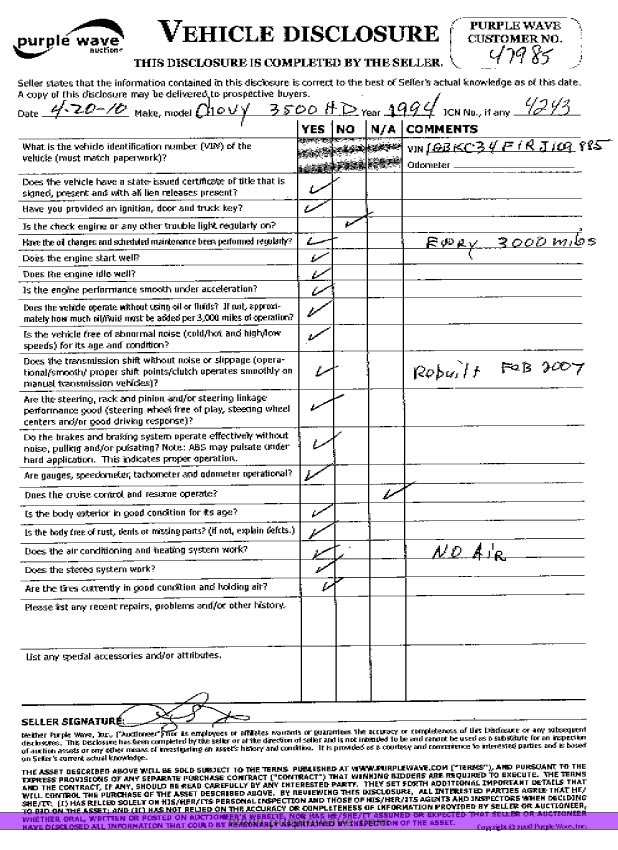 purple wave
auction
VEHICLE DISCLOSURE
THIS DISCLOSURE IS COMPLETED BY THE SELLER.
PURPLE WAVE
CUSTOMER NO.
47985
Seller states that the information contained in this disclosure is correct to the best of Seller's actual knowledge as of this date.
A copy of this disclosure may be delivered to prospective buyers.
Date 4-20-10 Make, model Chovy 3500 HD Year 1994 ICN No., if any 4243
YES NO N/A COMMENTS
What is the vehicle identification number (VIN) of the
vehicle (must match paperwork)?
VIN
Odometer
Does the vehicle have a state-issued certificate of title that is
signed, present and with all lien releases present?
Have you provided an ignition, door and truck key?
Is the check engine or any other trouble light regularly on?
Have the oil changes and scheduled maintenance been performed regularly? Every 3000 miles
Does the engine start well?
Does the engine idle well?
Is the engine performance smooth under acceleration?
Does the vehicle operate without using oil or fluids? If not, approxi-
mately how much oil/fluid must be added per 3,000 miles of operation?
Is the vehicle free of abnormal noise (cold/hot and high/low
speeds) for its age and condition?
Does the transmission shift without noise or slippage (opera-
tional/smooth/ proper shift points/clutch operates smoothly on
manual transmission vehicles)?
Robuilt FEB 2007
Are the steering, rack and pinion and/or steering linkage
performance good (steering wheel free of play, steering wheel
centers and/or good driving response)?
Do the brakes and braking system operate effectively without
noise, pulling and/or pulsating? Note: ABS may pulsate under
hard application. This indicates proper operation.
Are gauges, speedometer, tachometer and odometer operational?
Does the cruise control and resume operate?
Is the body exterior in good condition for its age?
Is the body free of rust, dents or missing parts? (if not, explain defects.)
Does the air conditioning and heating system work? NO Air
Does the stereo system work?
Are the tires currently in good condition and holding air?
Please list any recent repairs, problems and/or other history.
List any special accessories and/or attributes.
SELLER SIGNATURE:
Neither Purple Wave, Inc., ("Auctioneer") nor its employees or affiliates warrants or guarantees the accuracy or completeness of this Disclosure or any subsequent
disclosures. This Disclosure has been completed by the seller or at the direction of seller and is not intended to be and cannot be used as a substitute for an inspection
of auction assets or any other means of investigating an asset's history and condition. It is provided as a courtesy and convenience to interested parties and is based
on Seller's current actual knowledge.
THE ASSET DESCRIBED ABOVE WILL BE SOLD SUBJECT TO THE TERMS PUBLISHED AT WWW.PURPLEWAVE.COM ("TERMS"), AND PURSUANT TO THE
EXPRESS PROVISIONS OF ANY SEPARATE PURCHASE CONTRACT ("CONTRACT") THAT WINNING BIDDERS ARE REQUIRED TO EXECUTE. THE TERMS
AND THE CONTRACT, IF ANY, SHOULD BE READ CAREFULLY BY ANY INTERESTED PARTY. THEY SET FORTH ADDITIONAL IMPORTANT DETAILS THAT
WILL CONTROL THE PURCHASE OF THE ASSET DESCRIBED ABOVE. BY REVIEWING THIS DISCLOSURE, ALL INTERESTED PARTIES AGREE THAT HE/
SHE/IT: (I) HAS RELIED SOLELY ON HIS/HER/ITS PERSONAL INSPECTION AND THOSE OF HIS/HER/ITS AGENTS AND INSPECTORS WHEN DECIDING
TO BID ON THE ASSET; AND (II) HAS NOT RELIED ON THE ACCURACY OR COMPLETENESS OF INFORMATION PROVIDED BY SELLER OR AUCTIONEER,
WHETHER ORAL, WRITTEN OR POSTED ON AUCTIONEER'S WEBSITE, NOR HAS HE/SHE/IT ASSUMED OR EXPECTED THAT SELLER OR AUCTIONEER
HAVE DISCLOSED ALL INFORMATION THAT COULD BE REASONABLY ASCERTAINED BY INSPECTION OF THE ASSET.
Copyright (c) 2008 Purple Wave, Inc.